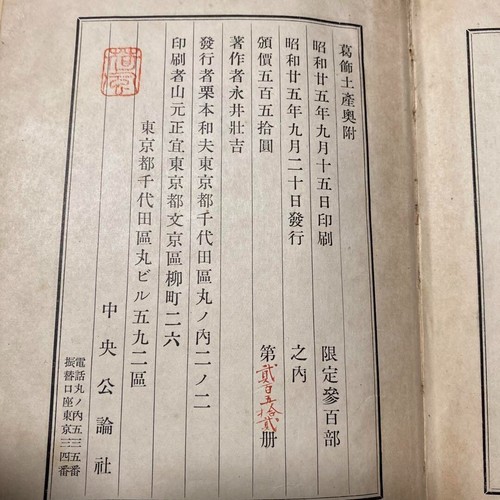 葛飾土產奧附
昭和廿五年九月十五日印刷 限定參百部
昭和廿五年九月二十日發行 之內
頒價五百五拾圓 第貳百五拾貳册
著作者永井壯吉
發行者栗本和夫東京都千代田區丸ノ內二ノ二
印刷者山元正宜東京都文京區柳町二六
東京都千代田區丸ビル五九二區
中央公論社
電話丸ノ內五三五番
振替口座東京三四番